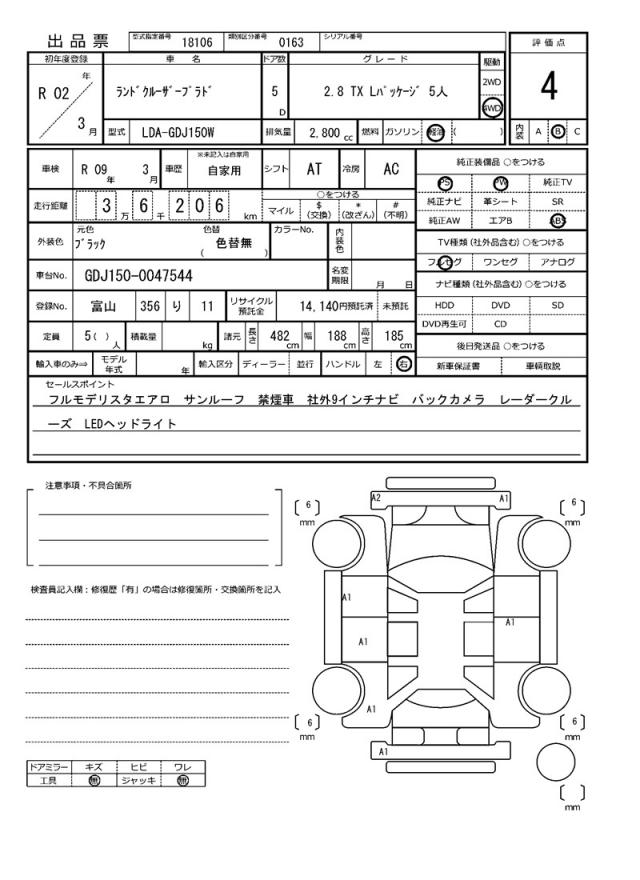 出品票 型式指定番号 18106 類別区分番号 0163 シリアル番号
評価点
4
内装 A B C
初年度登録 車名 ドア数 グレード 駆動
R 02 年 3 月
ランドクルーザープラド 5 D 2.8 TX Lパッケージ 5人
2WD
4WD
型式 LDA-GDJ150W 排気量 2,800 cc 燃料 ガソリン 軽油 ( )
車検 R 09 年 3 月 車歴 ※未記入は自家用 自家用 シフト AT 冷房 AC
走行距離 3 万 6 千 2 0 6 km
○をつける
マイル $(交換) *(改ざん) #(不明)
外装色 元色 ブラック 色替 ( 色替無 ) カラーNo. 内装色
車台No. GDJ150-0047544 名変期限 月 日
登録No. 富山 356 り 11 リサイクル預託金 14,140円預託済 未預託
定員 5( ) 人 積載量 kg 諸元 長さ 482 cm 幅 188 cm 高さ 185 cm
輸入車のみ⇒ モデル年式 年 輸入区分 ディーラー 並行 ハンドル 左 右
純正装備品 ○をつける
PS PW 純正TV
純正ナビ 革シート SR
純正AW エアB ABS
TV種類(社外品含む)○をつける
フルセグ ワンセグ アナログ
ナビ種類(社外品含む)○をつける
HDD DVD SD
DVD再生可 CD
後日発送品 ○をつける
新車保証書 車輌取説
セールスポイント
フルモデリスタエアロ サンルーフ 禁煙車 社外9インチナビ バックカメラ レーダークル
ーズ LEDヘッドライト
注意事項・不具合箇所
検査員記入欄:修復歴「有」の場合は修復箇所・交換箇所を記入
ドアミラー キズ ヒビ ワレ
工具 無 ジャッキ 無
A2 A1
6 mm
6 mm
A1
A1
A1
A1
6 mm
6 mm
A1
mm